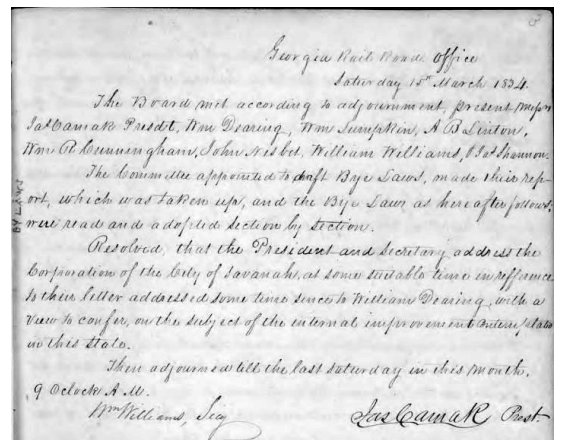 3
Georgia Rail Road Office
Saturday 15th March 1834.
The Board met according to adjournment, present Messrs
Jas Camak Presdt, Wm Dearing, Wm Lumpkin, A B Linton,
Wm R Cunningham, John Nisbet, William Williams, & Jas Shannon.
The Committee appointed to draft Bye Laws, made their rep-
ort, which was taken up, and the Bye Laws as hereafter follows,
were read and adopted section by section.
BY LAWS
Resolved, that the President and Secretary address the
Corporation of the City of Savanah, as some suitable time in refference
to their letter addressed some time since to William Dearing, with a
view to confer, on the subject of the internal improvement
in this state.
Then adjourned till the last Saturday in this month,
9 Oclock A M.
Wm Williams, Secy
Jas Camak Prest.